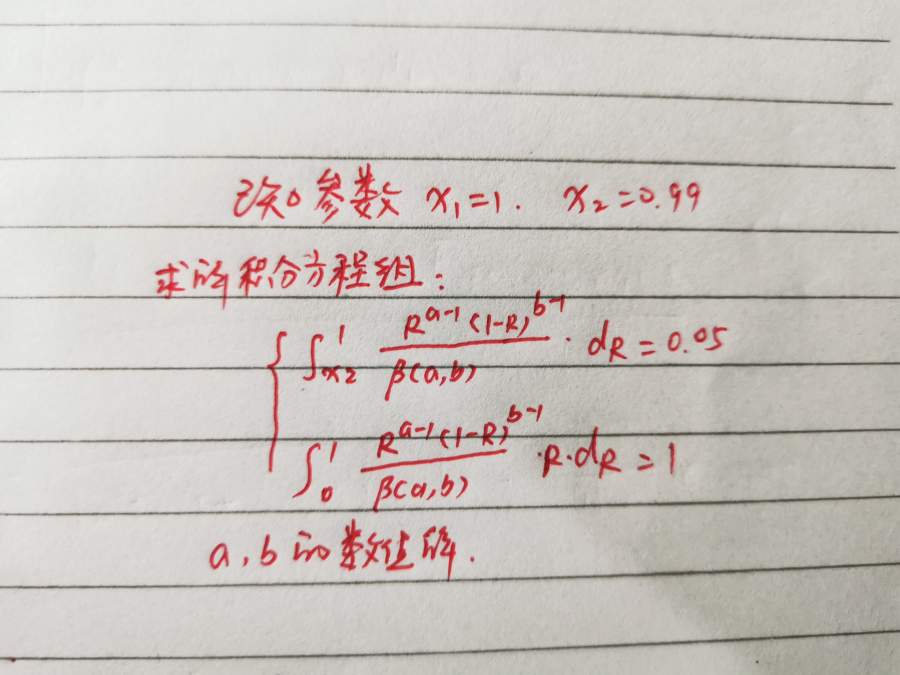 已知参数 x₁=1. x₂=0.99
求解积分方程组:
∫_{x₂}^{1} \frac{R^{a-1}(1-R)^{b-1}}{β(a,b)} · dR = 0.05
∫_{0}^{1} \frac{R^{a-1}(1-R)^{b-1}}{β(a,b)} · R · dR = 1
a,b的数值解.